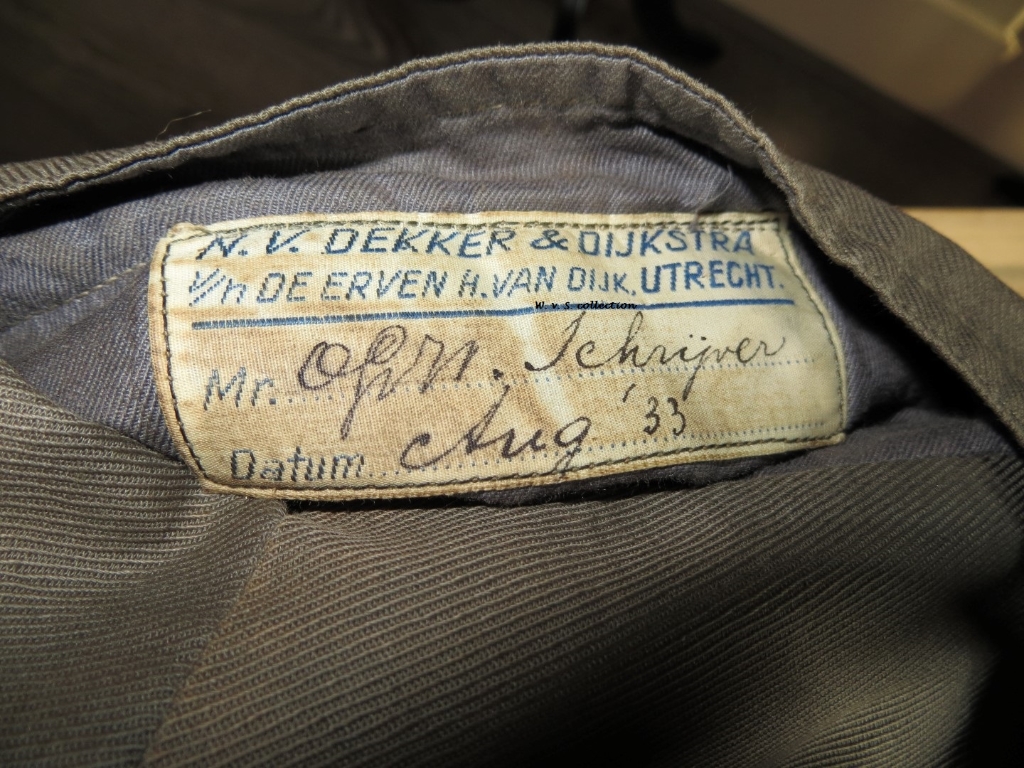 N.V. DEKKER & DIJKSTRA
V/n DE ERVEN H. VAN DIJK, UTRECHT.
W. v. S. collection
Mr. Ofzn. Schrijver
Datum Aug '33